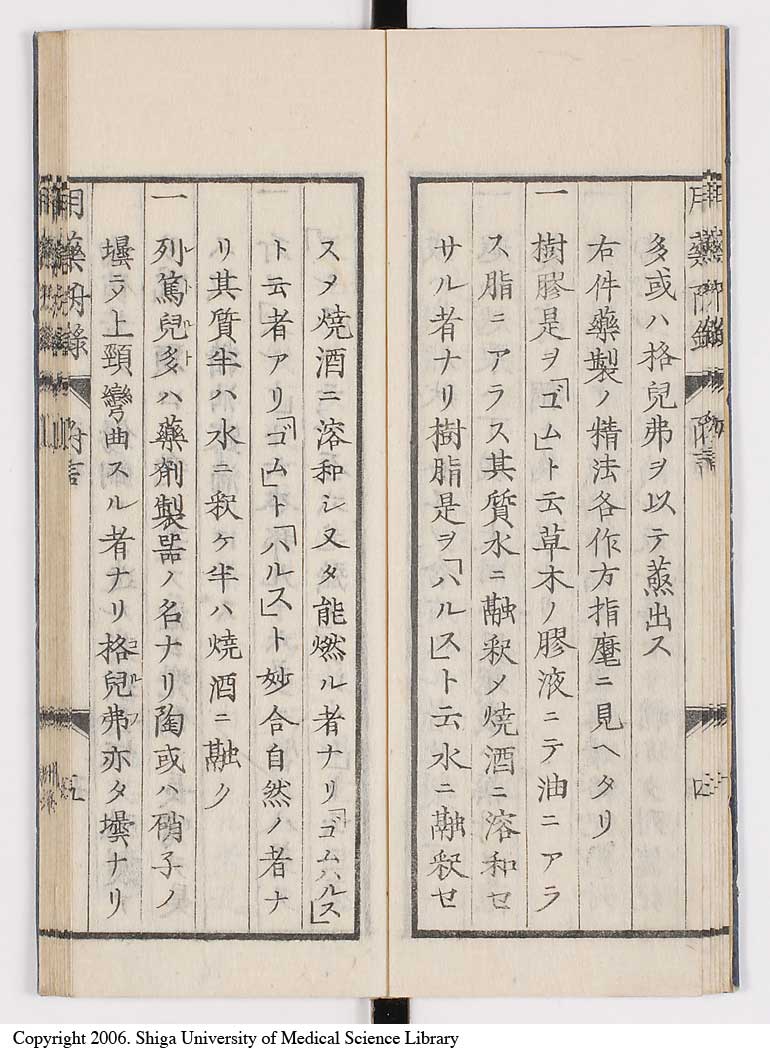 多或ハ格兒弗ヲ以テ蒸出ス
右件藥製ノ精法各作方指麾ニ見ヘタリ
一 樹膠是ヲ「ゴム」ト云草木ノ膠液ニテ油ニアラ
ス脂ニアラス其質水ニ融釈メ焼酒ニ溶和セ
サル者ナリ樹脂是ヲ「ハルス」ト云水ニ融釈セ
スメ焼酒ニ溶和シ又タ能燃ル者ナリ「ゴムハルス」
ト云者アリ「ゴム」ト「ハルス」ト妙合自然ノ者ナ
リ其質半ハ水ニ釈ケ半ハ焼酒ニ融ク
一 列篤兒多ハ藥剤製器ノ名ナリ陶或ハ硝子ノ
壜ニテ上頸彎曲スル者ナリ格兒弗亦タ壜ナリ
用藥附録 附言
Copyright 2006. Shiga University of Medical Science Library